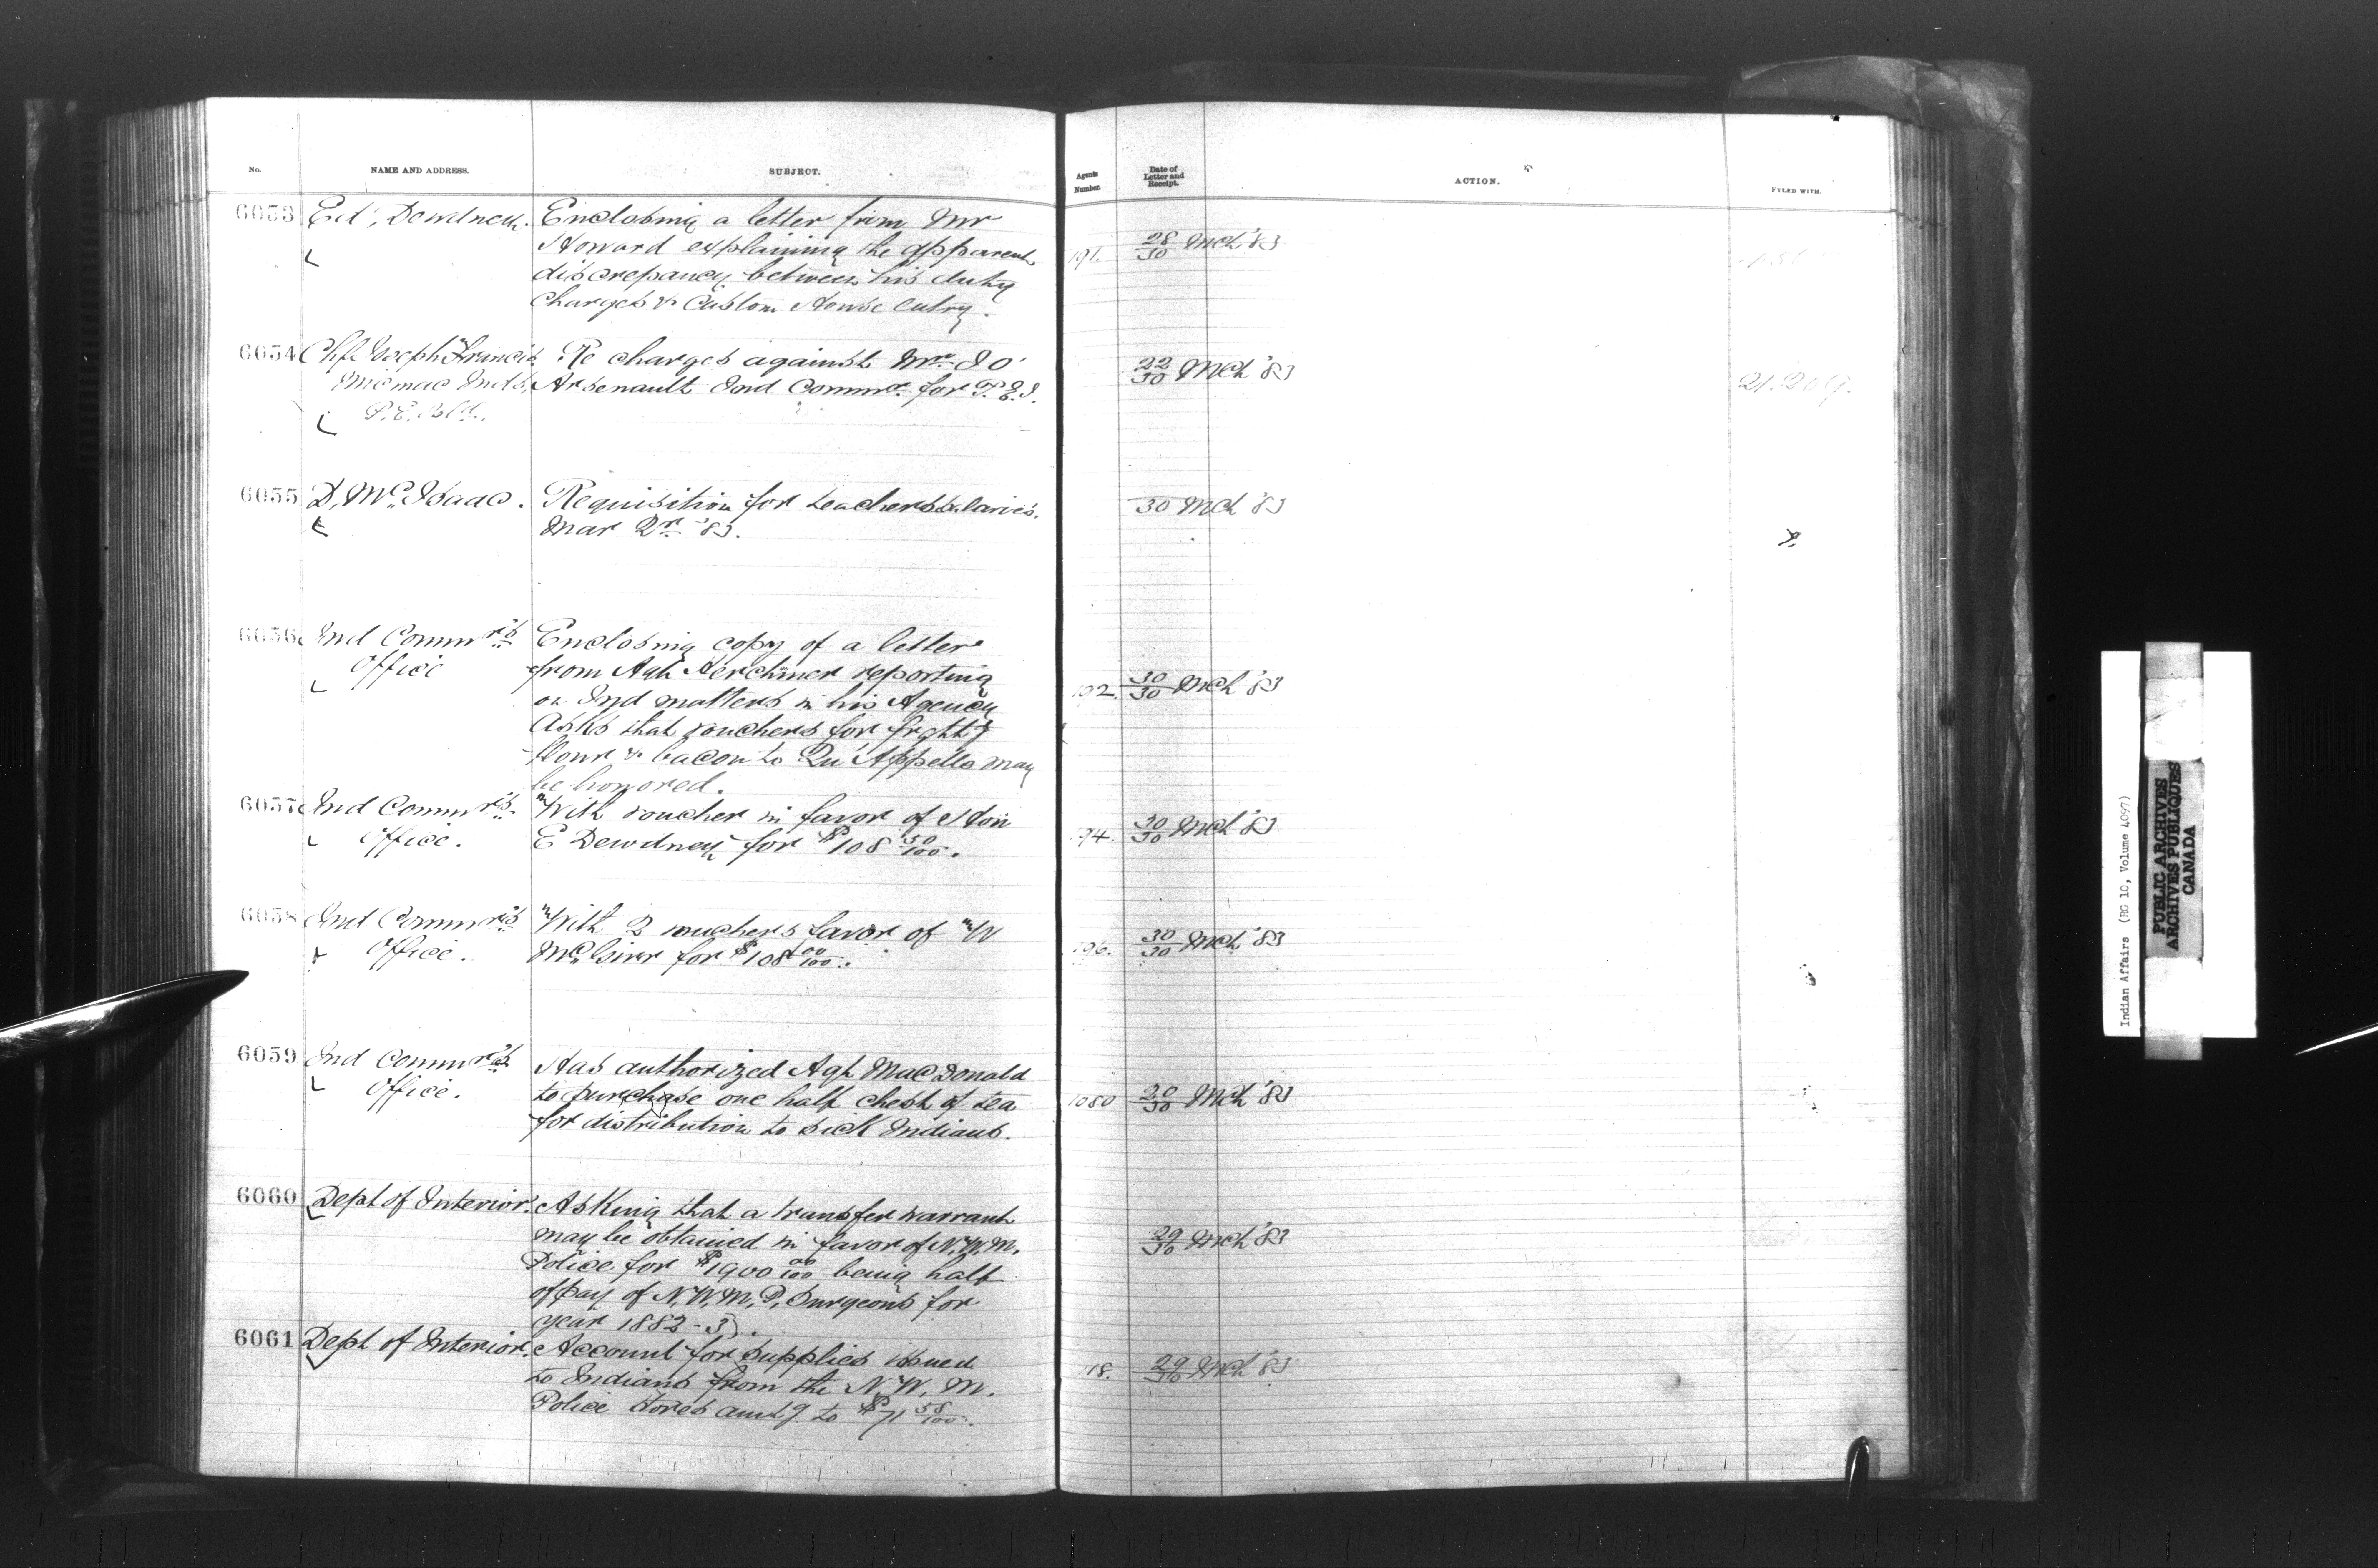 No. NAME AND ADDRESS. SUBJECT. Agents Number. Date of Letter and Receipt. ACTION. FYLED WITH.
6053 Ed, Dewdney. Enclosing a letter from Mr
Howard explaining the apparent 191. 28/30 Mch '83
discrepancy between his duty
charges & Custom House Entry.
6054 Chf. Joseph Francis Re charges against Mr. J O
Micmac Inds, Arsenault Ind Commr. for P. E. I. 22/30 Mch '83 21.209.
P. E. Isld.
6055 D, Mc. Isaac. Requisition for teachers salaries. 30 Mch '83
Mar Qr '83.
6056 Ind Commr's Enclosing copy of a letter
Office from Agt Herchmer reporting 192. 30/30 Mch '83
on Ind matters in his Agency
Asks that vouchers for frght
flour & bacon to Qu'Appelle may
be honored.
6057 Ind Commr's. With voucher in favor of Hon
Office. E Dewdney for $108 50/100. 194. 30/30 Mch '83
6058 Ind Commr's With 2 vouchers favor of W
Office. Mc.Girr for $108 00/100. 196. 30/30 Mch '83
6059 Ind Commr's Has authorized Agt MacDonald
Office. to purchase one half chest of tea 1080 20/30 Mch '83
for distribution to sick Indians.
6060 Dept of Interior. Asking that a transfer warrant
may be obtained in favor of N.W.M. 29/30 Mch '83
Police for $1900 00/100 being half
of pay of N.W.M.P. Surgeons for
year 1882-3.
6061 Dept of Interior. Account for supplies issued
to Indians from the N. W. M. 118. 29/30 Mch '83
Police stores amtg to $71 58/100.
Indian Affairs (RG 10, Volume 4097)
PUBLIC ARCHIVES
ARCHIVES PUBLIQUES
CANADA